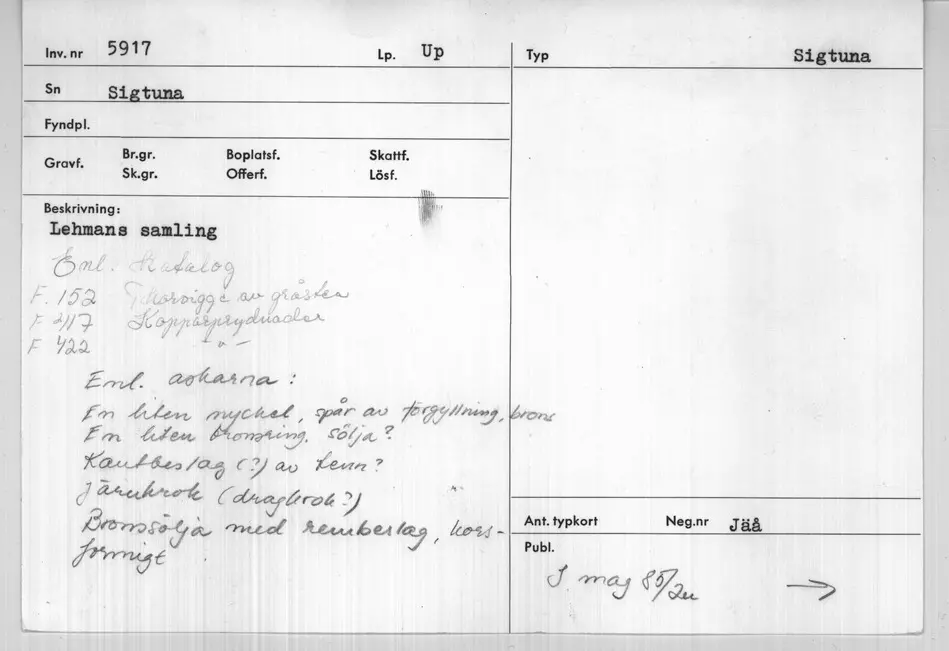 Inv. nr 5917 Lp. Up
Typ Sigtuna
Sn Sigtuna
Fyndpl.
Gravf. Br.gr. Boplatsf. Skattf.
Sk.gr. Offerf. Lösf.
Beskrivning:
Lehmans samling
Enl. Katalog
F. 152 av gråsten
F 217 Kopparprydnader
F 422 - " -
Enl. askarna :
En liten nyckel, spår av förgyllning, brons
En liten bronsring, sölja?
Kantbeslag (?) av tenn?
Järnkrok (dragkrok?)
Bronssölja med rembeslag, kors-
formigt
Ant. typkort Neg.nr Jäå
Publ.
I mag 85/2u →